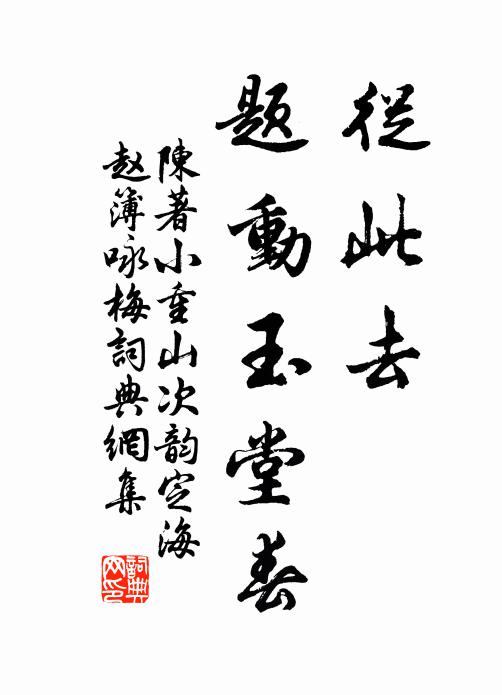 從此去
題動玉堂春
陳著小重山次韵定海
赵簿咏梅詞典網集
詞典
网印